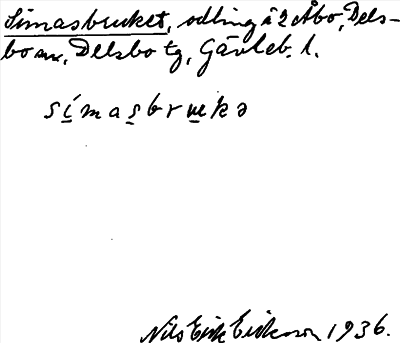 Simasbruket, odling å 2 Åbo, Dels-
bo sn, Delsbo tg, Gävleb. l.
símasbrukə
Nils Erik Erikson 1936.